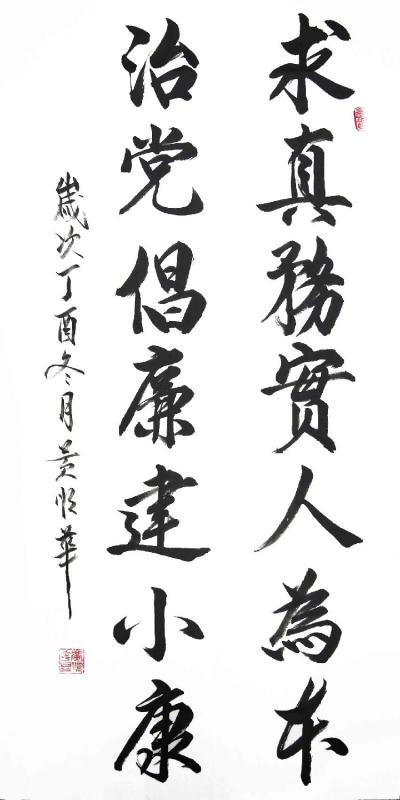 求真務實人為本
治党倡廉建小康
歲次丁酉冬月黃順華